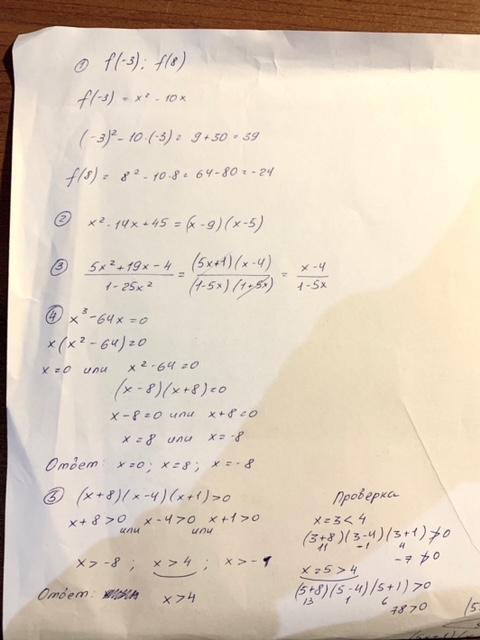 ① f(-3); f(8)
f(-3) = x² - 10x
(-3)² - 10·(-3) = 9+30 = 39
f(8) = 8² - 10·8 = 64-80 = -24
② x² - 14x + 45 = (x-9)(x-5)
③ (5x² + 19x - 4)/(1 - 25x²) = ((5x+1)(x-4))/((1-5x)(1+5x)) = (x-4)/(1-5x)
④ x³ - 64x = 0
x(x² - 64) = 0
x=0 или x² - 64 = 0
(x-8)(x+8)=0
x-8=0 или x+8=0
x=8 или x=-8
Ответ: x=0; x=8; x=-8
⑤ (x+8)(x-4)(x+1)>0
x+8>0 или x-4>0 или x+1>0
x>-8; x>4; x>-1
Ответ: x>4
Проверка
x=3<4
(3+8)(3-4)(3+1)≯0
11 -1 4
-7≯0
x=5>4
(5+8)(5-4)(5+1)>0
13 1 6
78>0